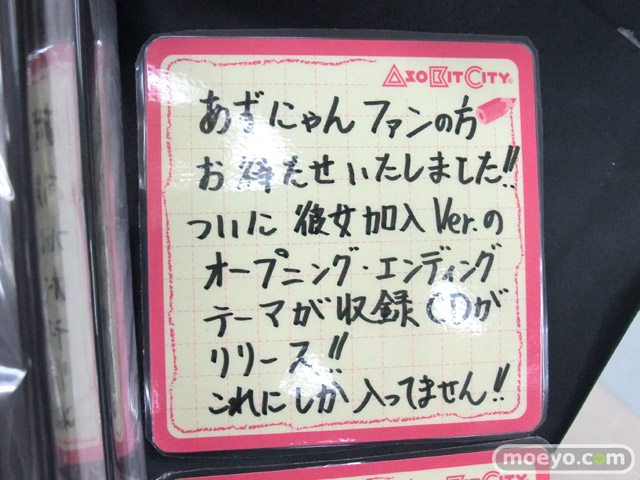 ASOBITCITY
あずにゃんファンの方
お待たせいたしました!!
ついに彼女加入Ver.の
オープニング・エンディング
テーマが収録CDが
リリース!!
これにしか入ってません!!
moeyo.com